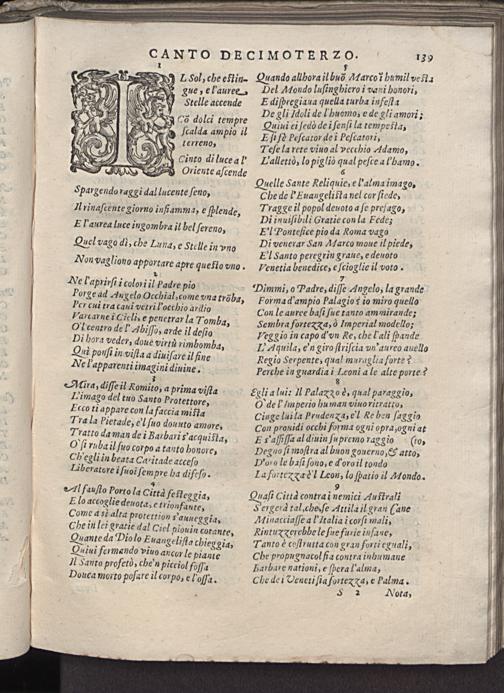 CANTO DECIMOTERZO. 139
1
IL Sol, che estin-
gue, e l'auree
Stelle accende
Cõ dolci tempre
scalda ampio il
terreno,
Cinto di luce a l'
Oriente ascende
Spargendo raggi dal lucente seno,
Il rinascente giorno infiamma, e splende,
E l'aurea luce ingombra il bel sereno,
Quel vago dì, che Luna, e Stelle in vno
Non vagliono apportare apre questo vno.
2
Ne l'aprirsi i colori il Padre pio
Porge ad Angelo Occhial, come vna trõba,
Per cui tra cani vetri l'occhio ardìo
Varcarne i Cieli, e penetrar la Tomba,
O'l centro de l'Abisso, arde il desio
Di hora veder, doue virtù rimbomba,
Qui ponsi in vista a diuisare il fine
Ne l'apparenti imagini diuine.
3
Mira, disse il Romito, a prima vista
L'imago del tuo Santo Protettore,
Ecco ti appare con la faccia mista
Tra la Pietate, e'l suo douuto amore,
Tratto da man de i Barbari s'acquista,
O' si ruba il suo corpo a tanto honore,
Ch'egli in beata Caritade acceso
Liberatore i suoi sempre ha difeso.
4
Al fausto Porto la Città festeggia,
E lo accoglie deuota, e trionfante,
Come a sì alta protettion s'aueggia,
Che in lei gratie dal Ciel piouin cotante,
Quante da Dio lo Euangelista chieggia,
Quiui fermando viuo ancor le piante
Il Santo profetò, che'n picciol fossa
Douea morto posare il corpo, e l'ossa.
5
Quando allhora il buõ Marco i humil vesta
Del Mondo lusinghiero i vani honori,
E dispregiaua quella turba infesta
De gli Idoli de l'huomo, e de gli amori;
Qui ei sedò de i sensi la tempesta,
E si fè Pescator de i Pescatori,
Tese la rete viuo al vecchio Adamo,
L'allettò, lo pigliò qual pesce a l'hamo.
6
Quelle Sante Reliquie, e l'alma imago,
Che de l'Euangelista nel cor siede,
Tragge il popol deuoto a se presago,
Di inuisibili Gratie con la Fede;
E'l Pontefice pio da Roma vago
Di venerar San Marco moue il piede,
E'l Santo peregrin graue, e deuoto
Venetia benedice, e scioglie il voto.
7
Dimmi, o Padre, disse Angelo, la grande
Forma d'ampio Palagio è io miro quello
Con le auree basi sue tanto ammirande;
Sembra fortezza, ò Imperial modello;
Veggio in capo d'vn Re, che l'ali spande
L'Aquila, e'n giro striscia vn'aureo anello
Regio Serpente, qual muraglia forte?
Perche in guardia i Leoni a le alte porte?
8
Egli a lui: Il Palazzo è, qual paraggio,
O' de l'Imperio human viuo ritratto,
Cinge lui la Prudenza, e'l Re ben saggio
Con prouidi occhi forma ogni opra, ogni at
E s'affissa al diuin supremo raggio (to,
Degno si mostra al buon gouerno, & atto,
D'oro le basi sono, e d'oro il tondo
La fortezza è'l Leon, lo spatio il Mondo.
9
Quasi Città contra i nemici Australi
Sergerà tal, che se Attila il gran Cane
Minacciasse a l'Italia i corsi mali,
Rintuzzerebbe le sue furie insane,
Tanto è costrutta con gran forti eguali,
Che propugnacol fia contra inhumane
Barbare nationi, e spera l'alma,
Che de i Veneti sia fortezza, e Palma.
S 2 Nota,